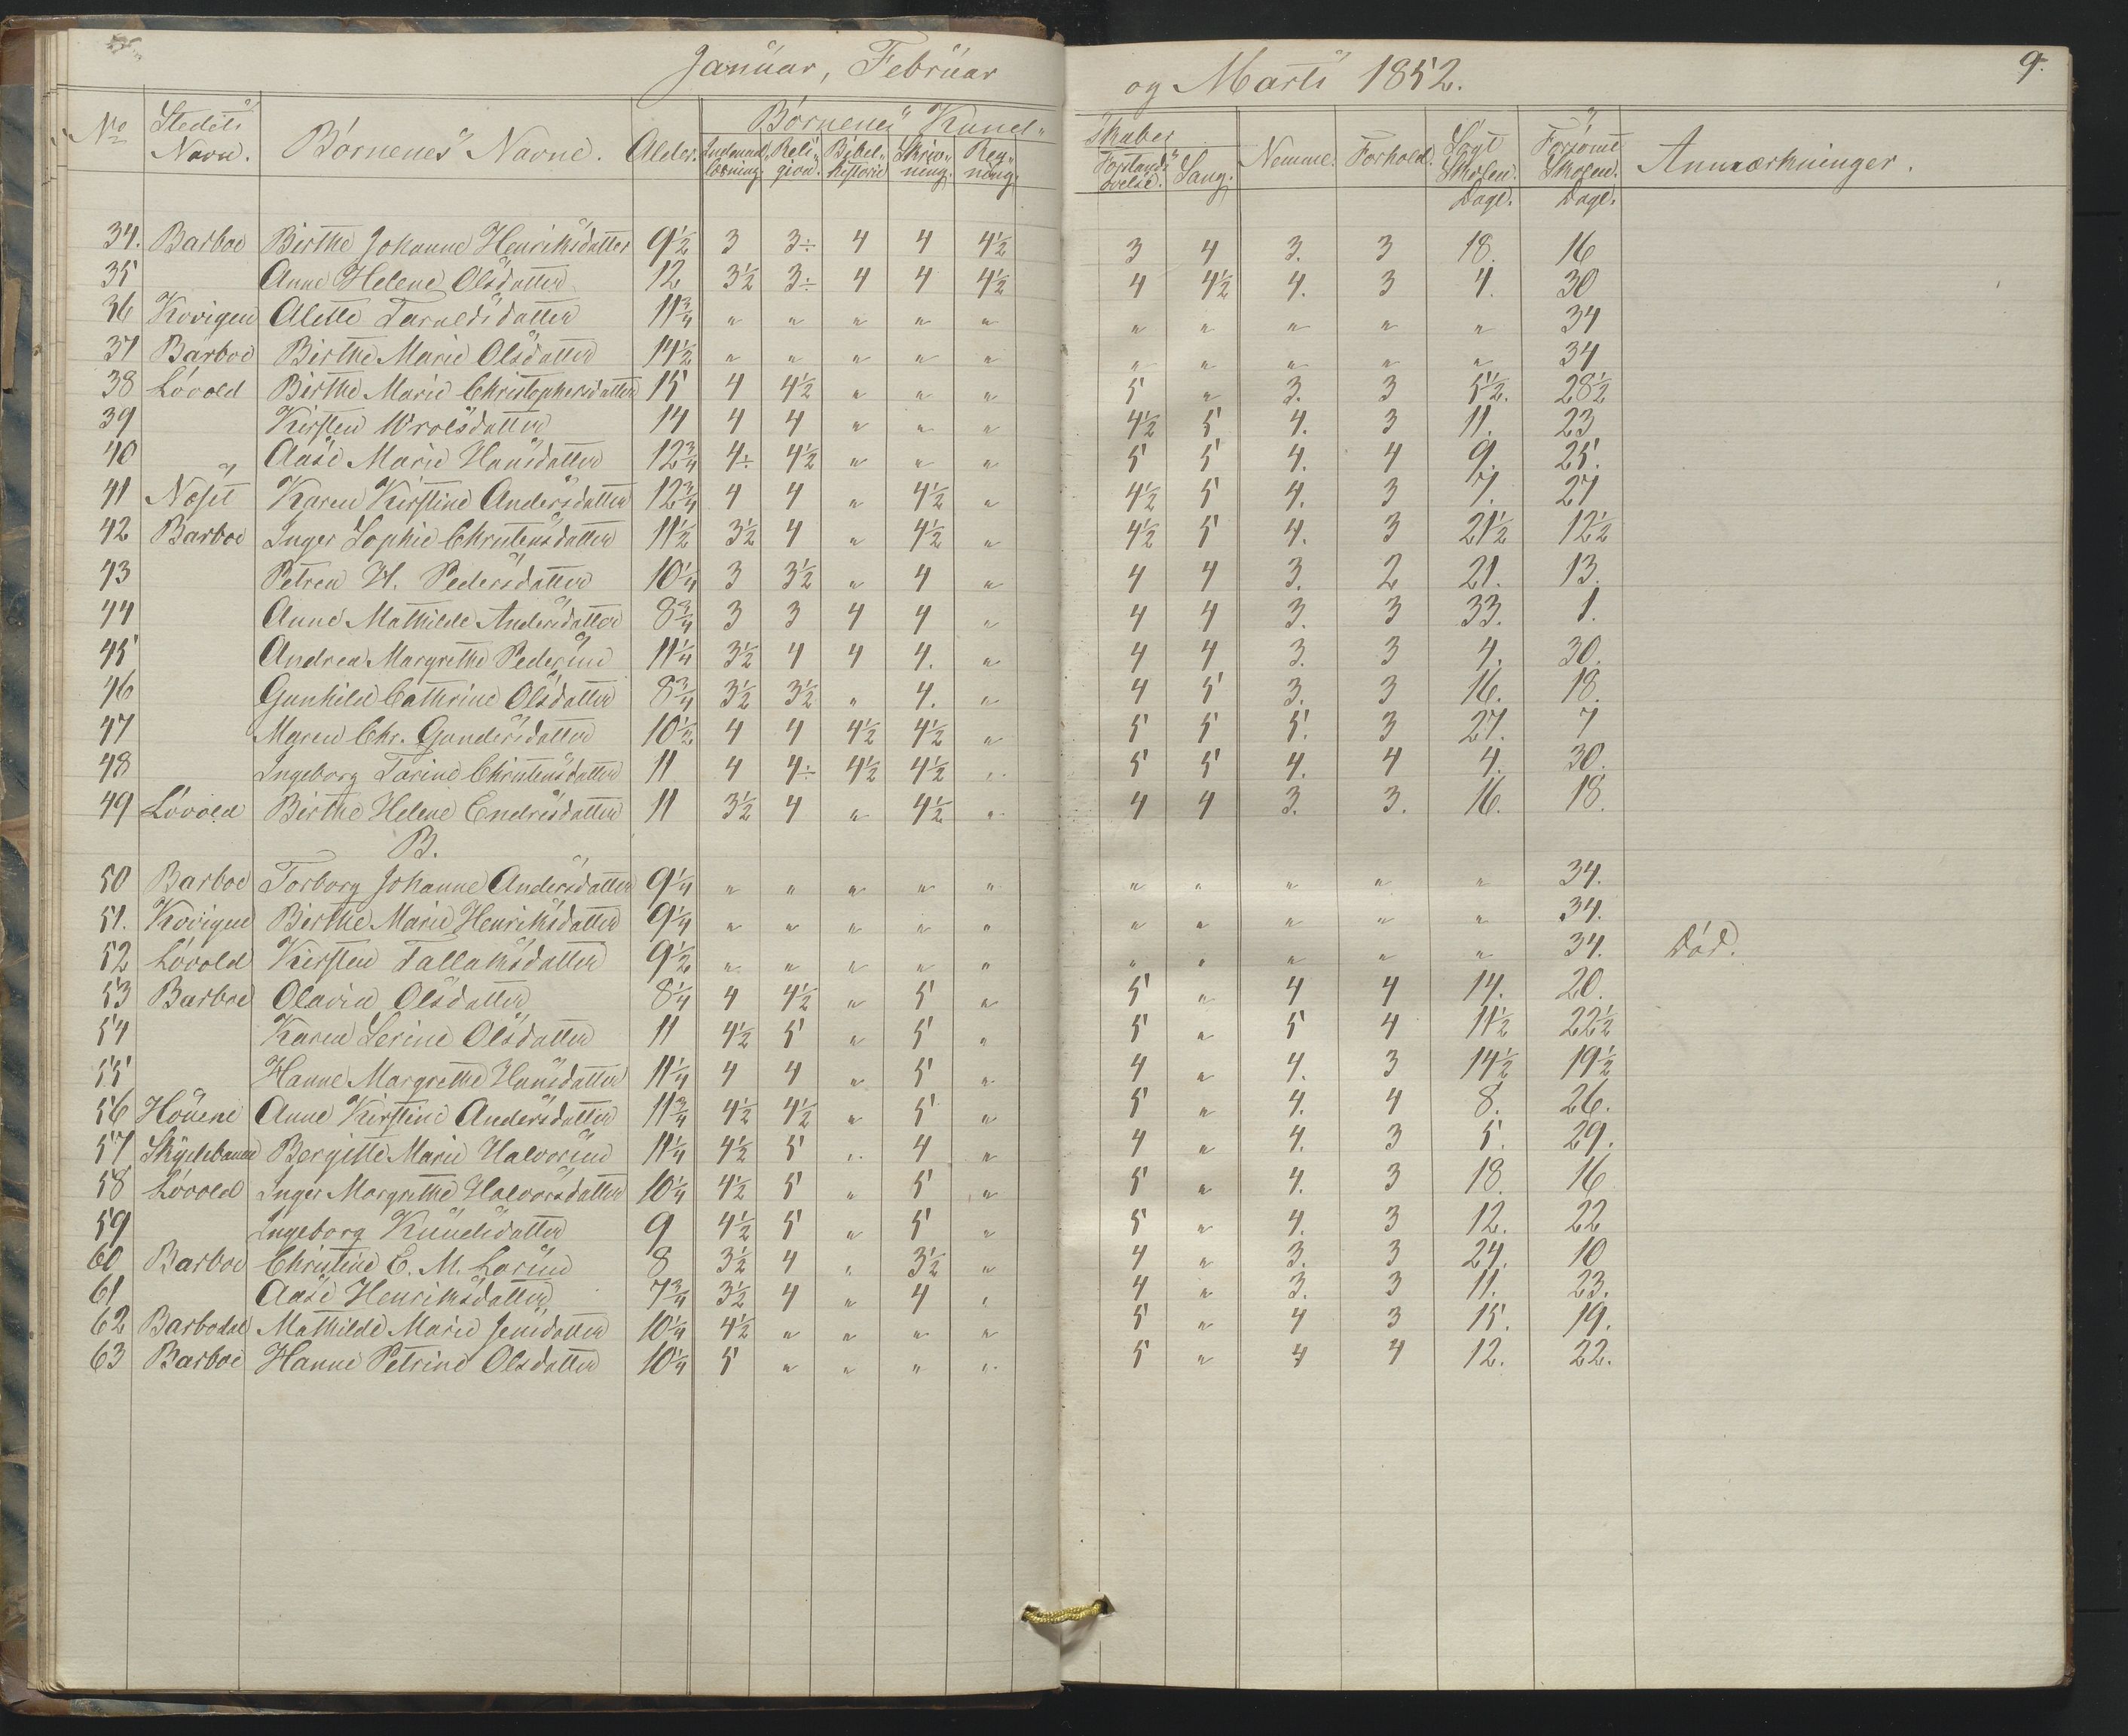 Januar, Februar og Marts 1852. 9.
No Stedets Navn. Børnenes Navne. Alder. Børnenes Kund- skaber Nemme. Forhold. Søgt Skolen. Dage. Forsømt Skolen. Dage. Anmærkninger.
Indenadslæsning. Religion. Bibelhistorie Skrivning. Regning. Forstandsøvelse. Sang.
34. Barboe Birthe Johanne Henriksdatter 9½ 3 3÷ 4 4 4½ 3 4 3. 3 18. 16
35 Anne Helene Olsdatter 12 3½ 3÷ 4 4 4½ 4 4½ 4. 3 4. 30
36 Kovigen Alette Taraldsdatter 11¾ " " " " " " " " " " 34
37 Barboe Birthe Marie Olsdatter 14½ " " " " " " " " " " 34
38 Løvold Birthe Marie Christophersdatter 15 4 4½ " " " 5 " 3. 3 5½. 28½
39 Kirsten Wrolsdatter 14 4 4 " " " 4½ 5 4. 3 11. 23
40 Aase Marie Hansdatter 12¾ 4÷ 4½ " " " 5 5 4. 4 9. 25.
41 Næset Karen Kirstine Andersdatter 12¾ 4 4 " 4½ " 4½ 5 4. 3 7. 27
42 Barboe Inger Sophie Christensdatter 11½ 3½ 4 " 4½ " 4½ 5 4. 3 21½ 12½
43 Petrea H. Pedersdatter 10¼ 3 3½ " 4 " 4 4 3. 2 21. 13.
44 Anne Mathilde Andersdatter 8¾ 3 3 4 4 " 4 4 3. 3 33. 1.
45 Andrea Margrethe Pedersen 11¼ 3½ 4 4 4. " 4 4 3. 3 4. 30.
46 Gunhild Cathrine Olsdatter 8¾ 3½ 3½ " 4. " 4 5 3. 3 16. 18.
47 Maren Chr. Gundersdatter 10½ 4 4 4½ 4½ " 5 5 5. 3 27. 7
48 Ingeborg Tarine Christensdatter 11 4 4÷ 4½ 4½ " 5 5 4. 4 4. 30.
49 Løvold Birthe Helene Endresdatter 11 3½ 4 " 4½ " 4 4 3. 3. 16. 18.
B.
50 Barboe Torborg Johanne Andersdatter 9¼ " " " " " " " " " " 34.
51. Kovigen Birthe Marie Henriksdatter 9¼ " " " " " " " " " " 34.
52 Løvold Kirsten Tallaksdatter 9½ " " " " " " " " " " 34. Død.
53 Barboe Olavia Olsdatter 8¼ 4 4½ " 5 " 5 " 4 4 14. 20.
54 Karen Serine Olsdatter 11 4½ 5 " 5 " 5 " 5 4 11½ 22½
55 Hanne Margrethe Hansdatter 11¼ 4 4 " 5 " 4 " 4. 3 14½ 19½
56 Houene Anne Kirstine Andersdatter 11¾ 4½ 4½ " 5 " 5 " 4. 4 8. 26.
57 Bergitte Marie Halvorsen 11¼ 4½ 5 " 4 " 4 " 4. 3 5. 29.
58 Løvold Inger Margrethe Halvorsdatter 10¼ 4½ 5 " 5 " 5 " 4. 3 18. 16
59 Ingeborg Knudsdatter 9 4½ 5 " 5 " 5 " 4. 3 12. 22
60 Barboe Christine C. M. Larsen 8 3½ 4 " 3½ " 4 " 3. 3 24. 10
61 Aase Henriksdatter 7¾ 3½ 4 " 4 " 4 " 3. 3 11. 23.
62 Barbodal Mathilde Marie Jensdatter 10¼ 4½ " " " " 5 " 4 3 15. 19.
63 Barboe Hanne Petrine Olsdatter 10¼ 5 " " " " 5 " 4 4 12. 22.